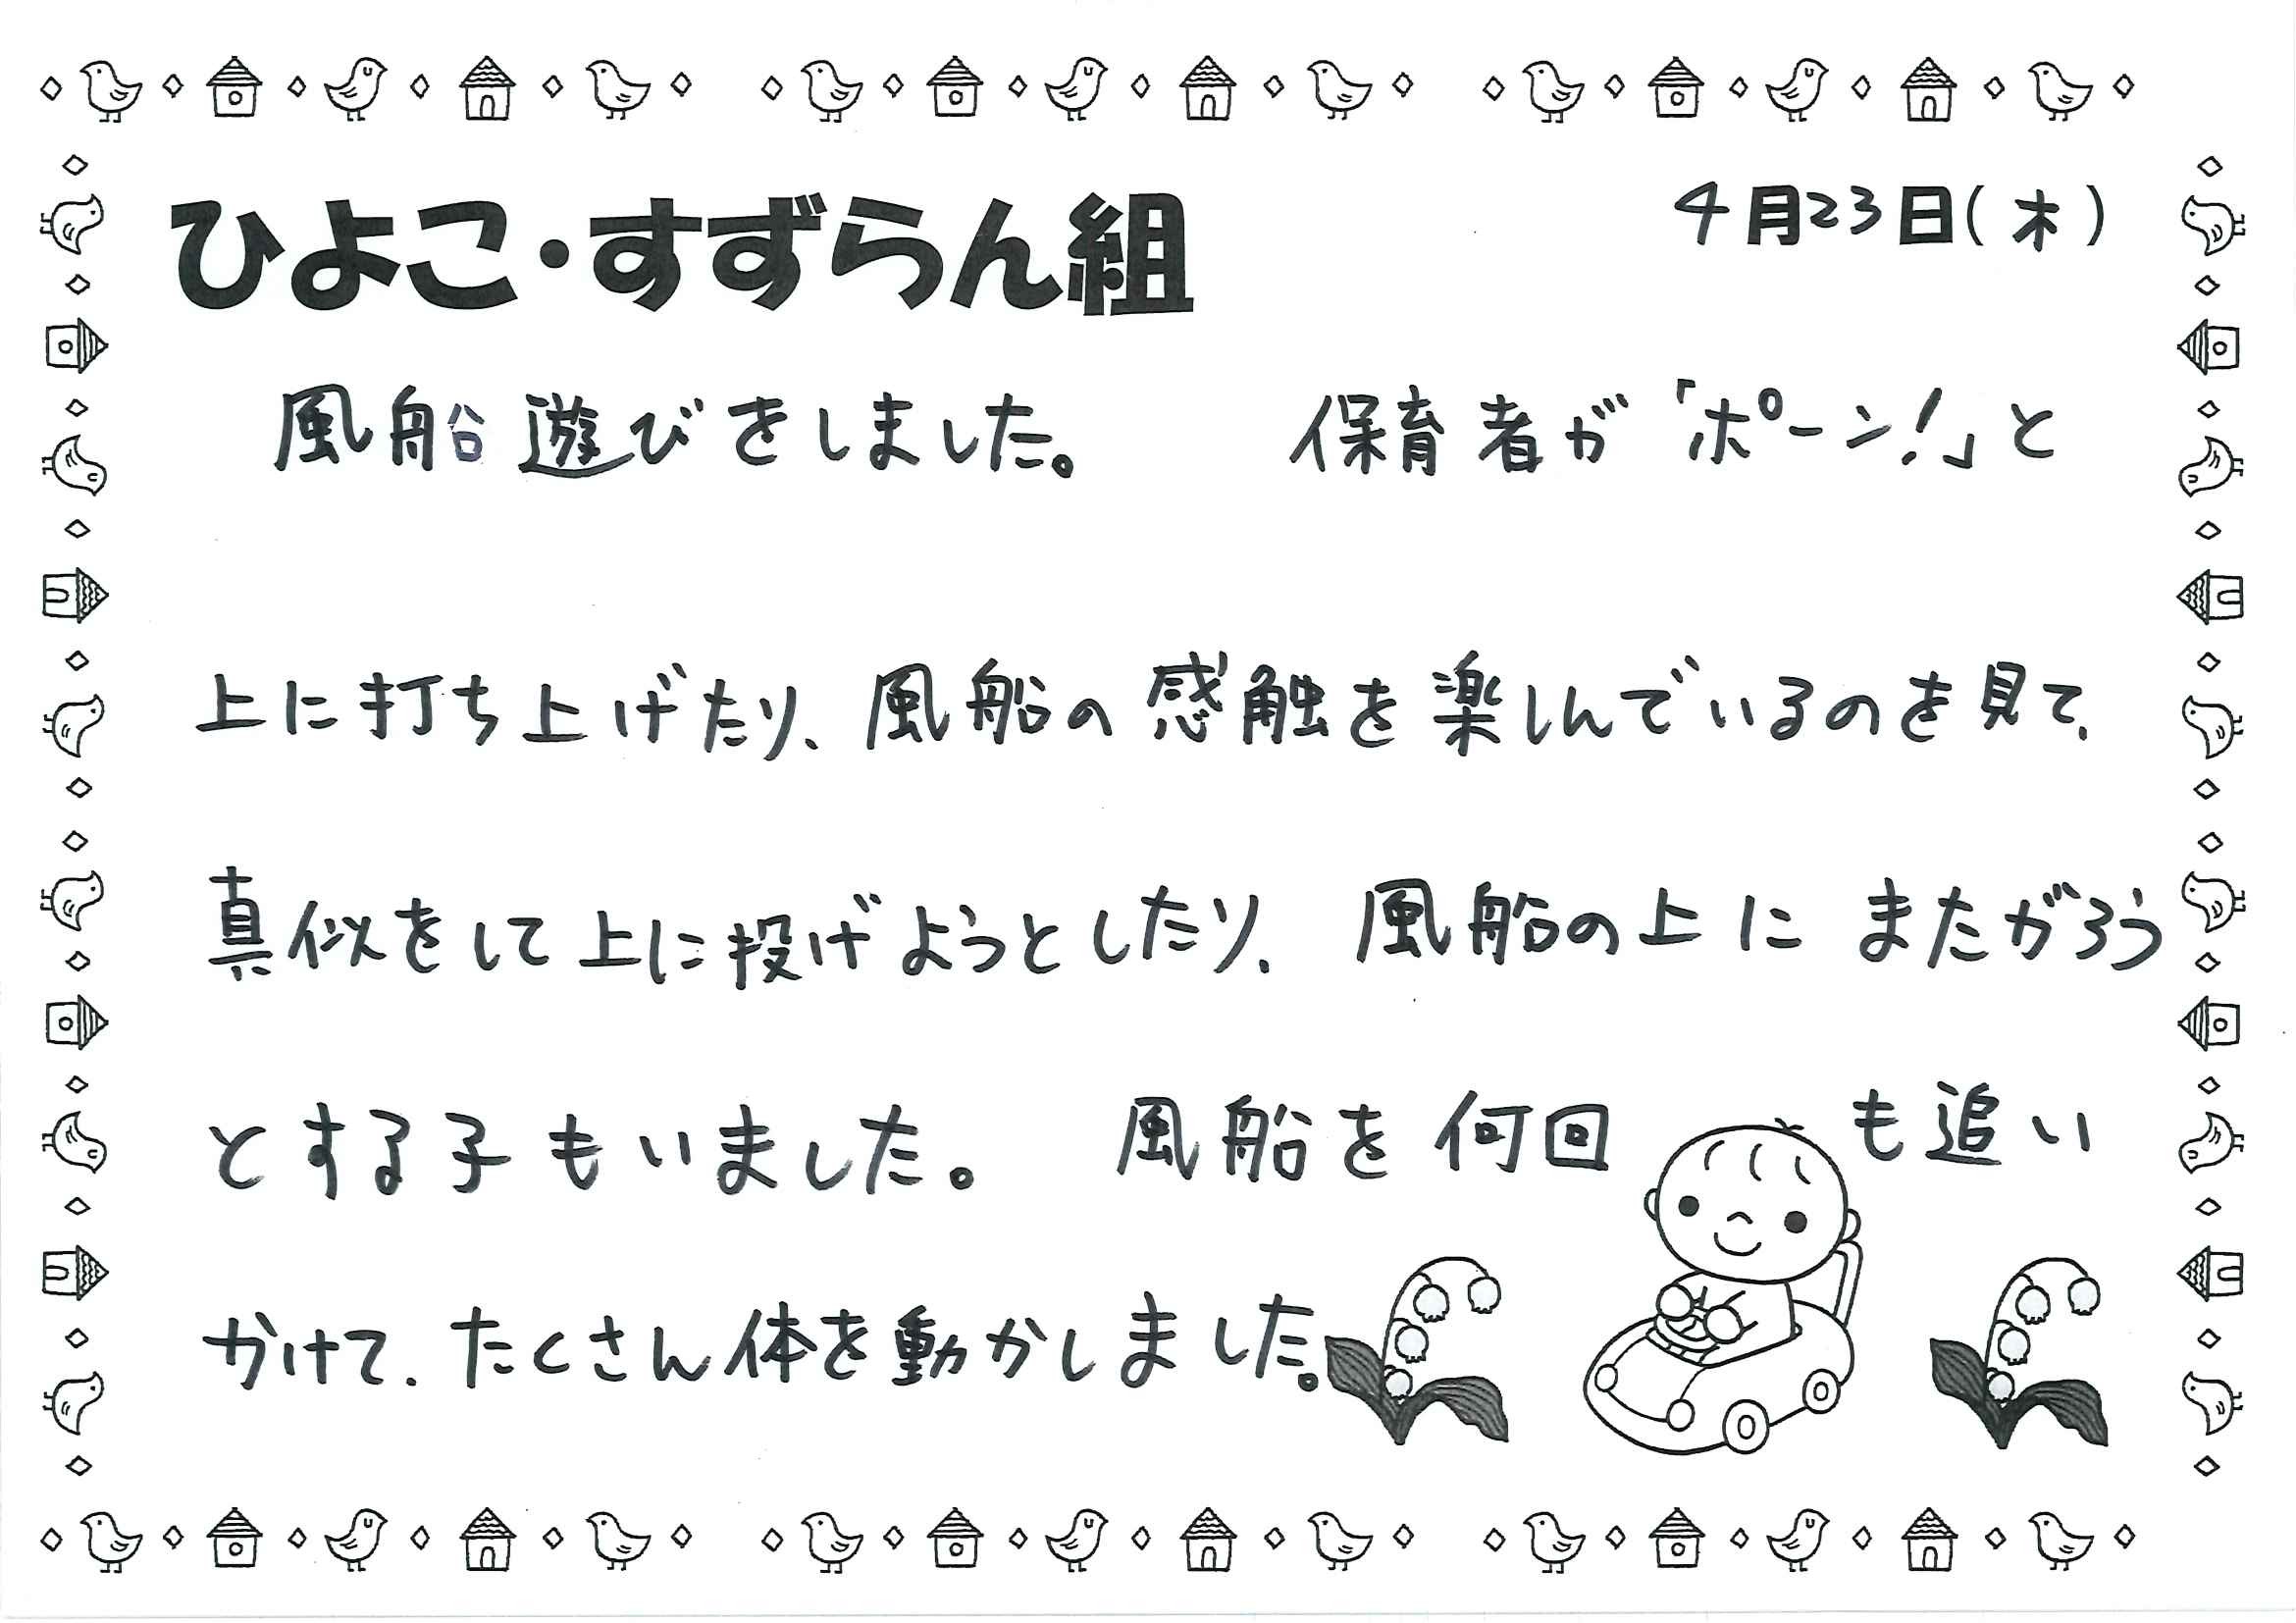 ひよこ・すずらん組
4月23日(木)
風船遊びをしました。 保育者が「ポーン!」と
上に打ち上げたり、風船の感触を楽しんでいるのを見て、
真似をして上に投げようとしたり、風船の上にまたがろう
とする子もいました。 風船を何回も追い
かけて、たくさん体を動かしました。